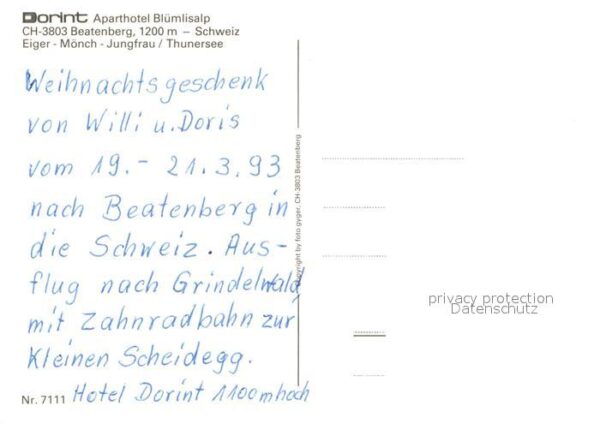 Dorint Aparthotel Blümlisalp
CH-3803 Beatenberg, 1200 m – Schweiz
Eiger - Mönch - Jungfrau / Thunersee
Weihnachtsgeschenk
von Willi u. Doris
vom 19. - 21.3.93
nach Beatenberg in
die Schweiz. Aus-
flug nach Grindelwald
mit Zahnradbahn zur
Kleinen Scheidegg.
Hotel Dorint 1100m hoch
Nr. 7111
Copyright by foto gyger, CH-3803 Beatenberg
privacy protection
Datenschutz